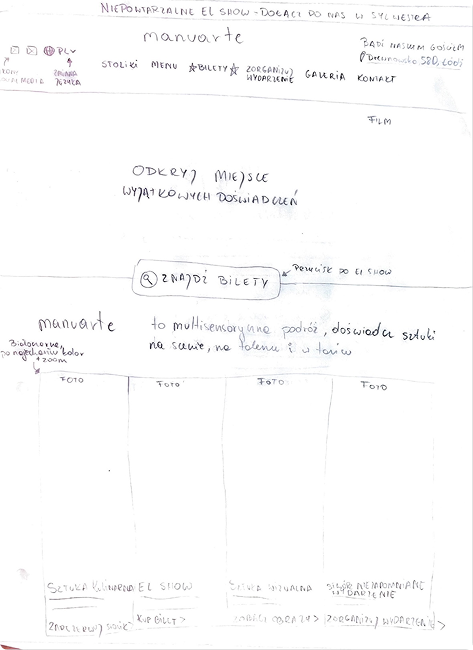 NIEPOWTARZALNE EL SHOW - DOŁĄCZ DO NAS W SYLWESTRA
manuarte
PL
BĄDŹ NASZYM GOŚCIEM
Drewnowska 58D, Łódź
STOLIKI MENU ☆BILETY☆ ZORGANIZUJ WYDARZENIE GALERIA KONTAKT
IKONY
MEDIA
ZMIANA
JĘZYKA
FILM
ODKRYJ MIEJSCE
WYJĄTKOWYCH DOŚWIADCZEŃ
ZNAJDŹ BILETY
PRZYCISK DO EL SHOW
manuarte to multisensoryczna podróż, doświadcz sztuki
na scenie, na talerzu i w tańcu
Białoczarne,
po najechaniu kolor
+ zoom
FOTO FOTO FOTO FOTO
SZTUKA KULINARNA EL SHOW SZTUKA WIZUALNA STWÓRZ NIEZAPOMNIANE
WYDARZENIE
ZAREZERWUJ STOLIK KUP BILET > ZOBACZ OBRAZY > ZORGANIZUJ WYDARZENIE >